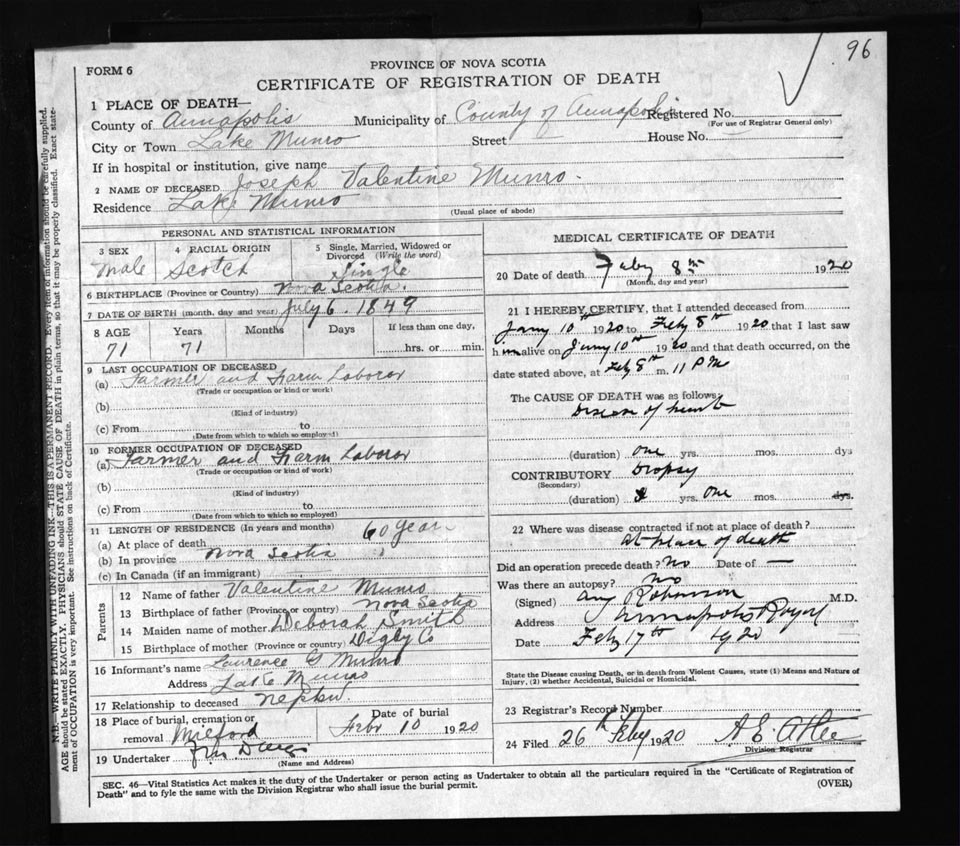 96
PROVINCE OF NOVA SCOTIA
FORM 6
CERTIFICATE OF REGISTRATION OF DEATH
1 PLACE OF DEATH—
County of Annapolis Municipality of County of Annapolis Registered No.
(For use of Registrar General only)
City or Town Lake Munro Street House No.
If in hospital or institution, give name
2 NAME OF DECEASED Joseph Valentine Munro.
Residence Lake Munro
(Usual place of abode)
PERSONAL AND STATISTICAL INFORMATION
3 SEX 4 RACIAL ORIGIN 5 Single, Married, Widowed or Divorced (Write the word)
Male Scotch Single
6 BIRTHPLACE (Province or Country) Nova Scotia.
7 DATE OF BIRTH (month, day and year) July 6. 1849
8 AGE Years Months Days If less than one day,
71 71 hrs. or min.
9 LAST OCCUPATION OF DECEASED
(a) Farmer and Farm Laboror
(Trade or occupation or kind of work)
(b)
(Kind of industry)
(c) From to
(Date from which to which so employed)
10 FORMER OCCUPATION OF DECEASED
(a) Farmer and Farm Laboror
(Trade or occupation or kind of work)
(b)
(Kind of industry)
(c) From to
(Date from which to which so employed)
11 LENGTH OF RESIDENCE (In years and months)
(a) At place of death 60 years
(b) In province Nova Scotia
(c) In Canada (if an immigrant)
Parents
12 Name of father Valentine Munro
13 Birthplace of father (Province or country) Nova Scotia
14 Maiden name of mother Deborah Smith
15 Birthplace of mother (Province or country) Digby Co
16 Informant's name Laurence G Munro
Address Lake Munro
17 Relationship to deceased Nephew.
18 Place of burial, cremation or removal Milford
Date of burial
Febr 10 1920
19 Undertaker
(Name and Address)
MEDICAL CERTIFICATE OF DEATH
20 Date of death Feby 8th 1920
(Month, day and year)
21 I HEREBY CERTIFY, that I attended deceased from
Jany 10th 1920 to Feby 8th 1920 that I last saw
him alive on Jany 10th 1920 and that death occurred, on the
date stated above, at Feby 8th m. 11 PM
The CAUSE OF DEATH was as follows:
Disease of heart
(duration) one yrs. mos. dys
CONTRIBUTORY Dropsy
(Secondary)
(duration) yrs. one mos. dys.
22 Where was disease contracted if not at place of death?
At place of death
Did an operation precede death? No Date of —
Was there an autopsy? No
(Signed) Robinson M.D.
Address Annapolis Royal
Date Feby 17th 1920
State the Disease causing Death, or in death from Violent Causes, state (1) Means and Nature of
Injury, (2) whether Accidental, Suicidal or Homicidal.
23 Registrar's Record Number
24 Filed 26th Feby 1920 A E Atlee
Division Registrar
SEC. 46—Vital Statistics Act makes it the duty of the Undertaker or person acting as Undertaker to obtain all the particulars required in the "Certificate of Registration of
Death" and to fyle the same with the Division Registrar who shall issue the burial permit.
(OVER)
N.B.—WRITE PLAINLY WITH UNFADING INK—THIS IS A PERMANENT RECORD. Every item of information should be carefully supplied.
AGE should be stated EXACTLY. PHYSICIANS should STATE CAUSE OF DEATH in plain terms, so that it may be properly classified. Exact state-
ment of OCCUPATION is very important. See instructions on back of Certificate.